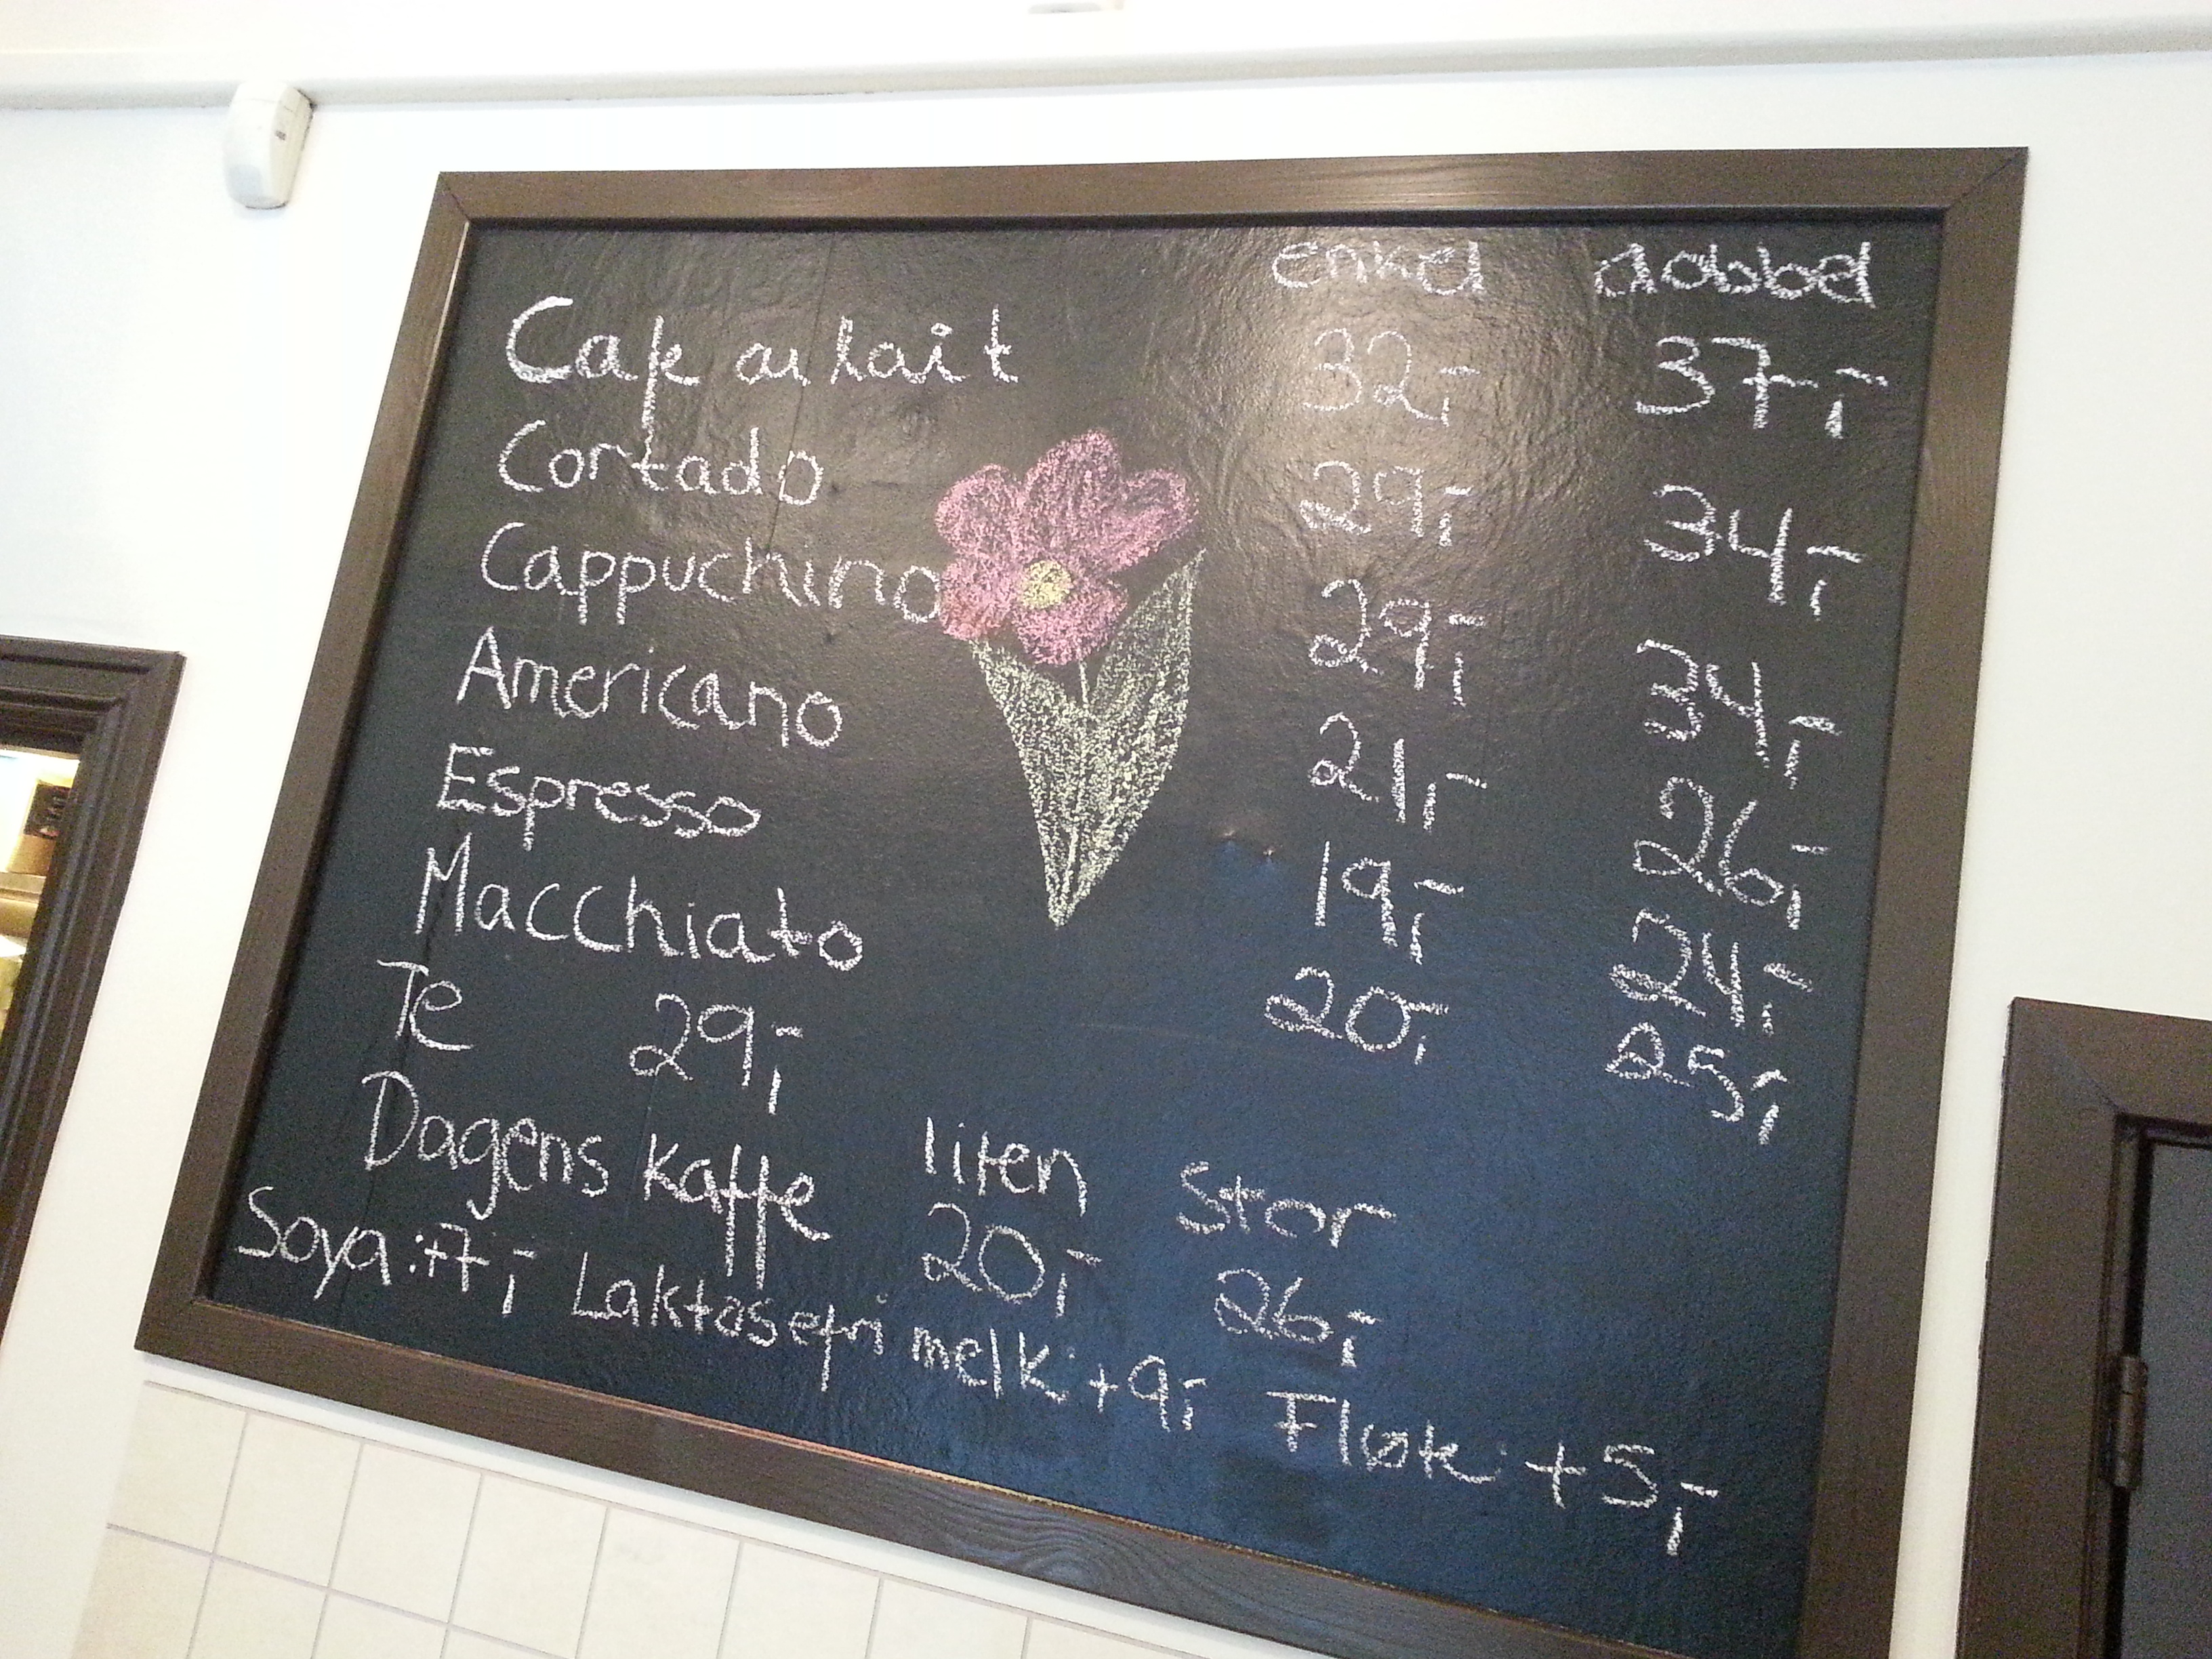 enkel dobbel
Cafe au lait 32,- 37,-
Cortado 29,- 34,-
Cappuchino 29,- 34,-
Americano 21,- 26,-
Espresso 19,- 24,-
Macchiato 20,- 25,-
Te 29,-
Dagens kaffe liten stor
20,- 26,-
Soya :+7,- Laktosefri melk: +9,- Fløte: +5,-